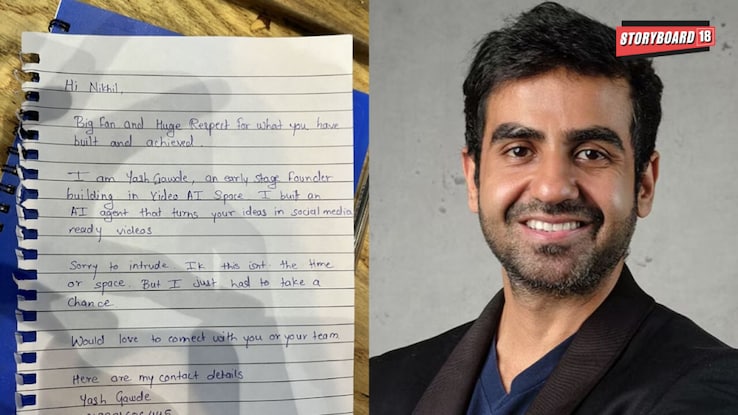 Hi Nikhil,
Big Fan and Huge Respect for what you have
built and achieved.
I am Yash Gawde, an early stage founder
building in Video AI Space I built an
AI agent that turns your ideas in social media
ready videos
Sorry to intrude. Ik this isnt the time
or space. But I Just had to take a
Chance
Would love to connect with you or your team.
Here are my contact details
Yash Gawde
STORYBOARD 18